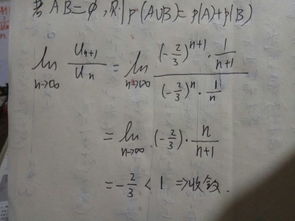 若 AB=∅, 则 P(A∪B)=P(A)+P(B)
lim_{n→∞} U_{n+1}/U_n = lim_{n→∞} ((-2/3)^{n+1} · 1/(n+1)) / ((-2/3)^n · 1/n)
= lim_{n→∞} (-2/3) · n/(n+1)
= -2/3 < 1 ⇒ 收敛.